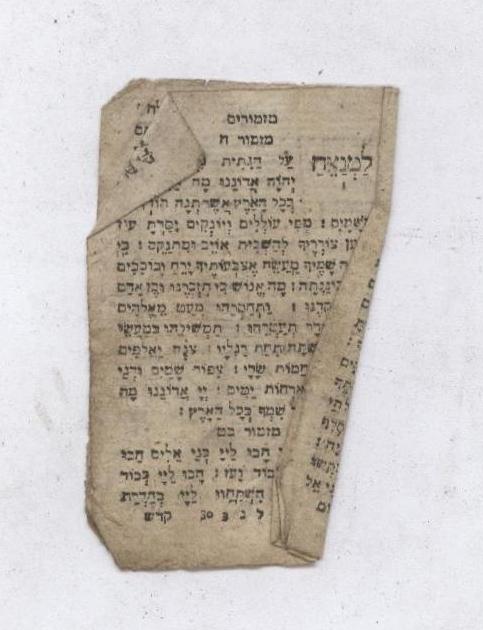 מזמורים
מזמור ח
לַמְנַצֵּחַ עַל הַגִּתִּית
יְהוָֹה אֲדוֹנֵנוּ מָה
בְּכָל הָאָרֶץ אֲשֶׁר תְּנָה הוֹדְ
הַשָּׁמָיִם : מִפִּי עוֹלְלִים וְיוֹנְקִים יִסַּדְתָּ עוֹז
צוֹרְרֶיךָ לְהַשְׁבִּית אוֹיֵב וּמִתְנַקֵּם : כִּי
שָׁמֶיךָ מַעֲשֵׂה אֶצְבְּעוֹתֶיךָ יָרֵחַ וְכוֹכָבִים
כּוֹנָנְתָּה : מָה אֱנוֹשׁ כִּי תִזְכְּרֶנּוּ וּבֶן אָדָם
תִפְקְדֶנּוּ : וַתְּחַסְּרֵהוּ מְעַט מֵאֱלֹהִים
תְּעַטְּרֵהוּ : תַּמְשִׁילֵהוּ בְּמַעֲשֵׂי
שַׁתָּה תַחַת רַגְלָיו : צֹנֶה וַאֲלָפִים
בַּהֲמוֹת שָׂדָי : צִפּוֹר שָׁמַיִם וּדְגֵי
אָרְחוֹת יַמִּים : יְיָ אֲדוֹנֵנוּ מָה
שִׁמְךָ בְּכָל הָאָרֶץ :
מזמור כט
הָבוּ לַייָ בְּנֵי אֵלִים הָבוּ
כָּבוֹד וָעֹז : הָבוּ לַייָ כְּבוֹד
הִשְׁתַּחֲווּ לַייָ בְּהַדְרַת
ל ג 3 30 קדש